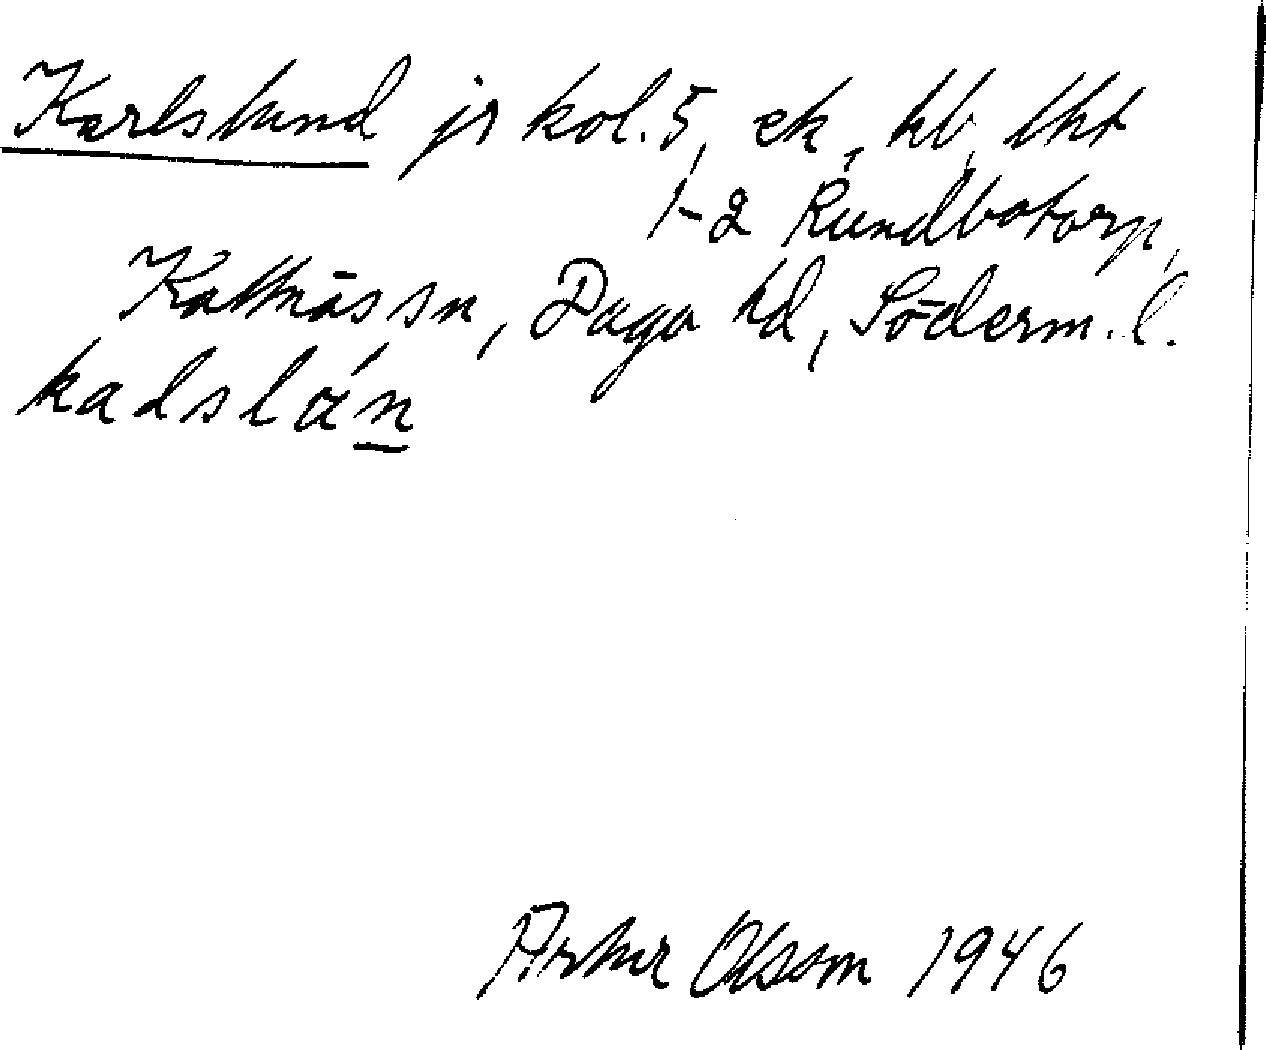 Karlslund jr kol. 5, ek, hb, lht
1-2 Rundbotorp,
Kattnäs sn, Daga hd, Söderm. l.
kadslán
Arthur Olsson 1946